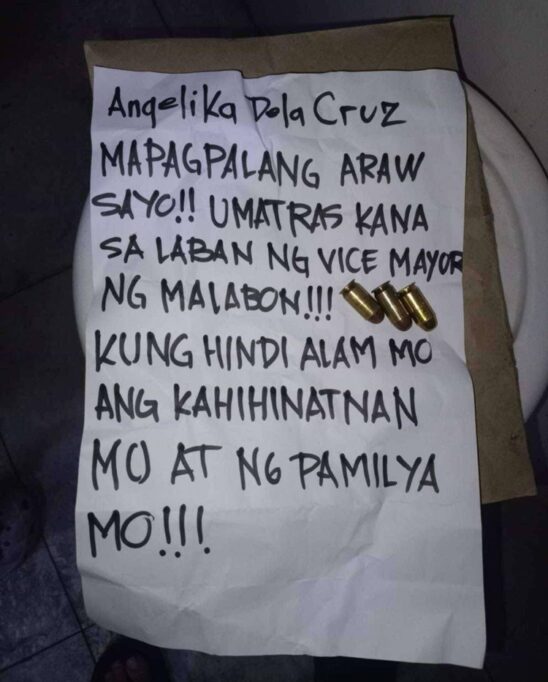 Angelika Dela Cruz
MAPAGPALANG ARAW
SAYO!! UMATRAS KANA
SA LABAN NG VICE MAYOR
NG MALABON!!!
KUNG HINDI ALAM MO
ANG KAHIHINATNAN
MO AT NG PAMILYA
MO!!!